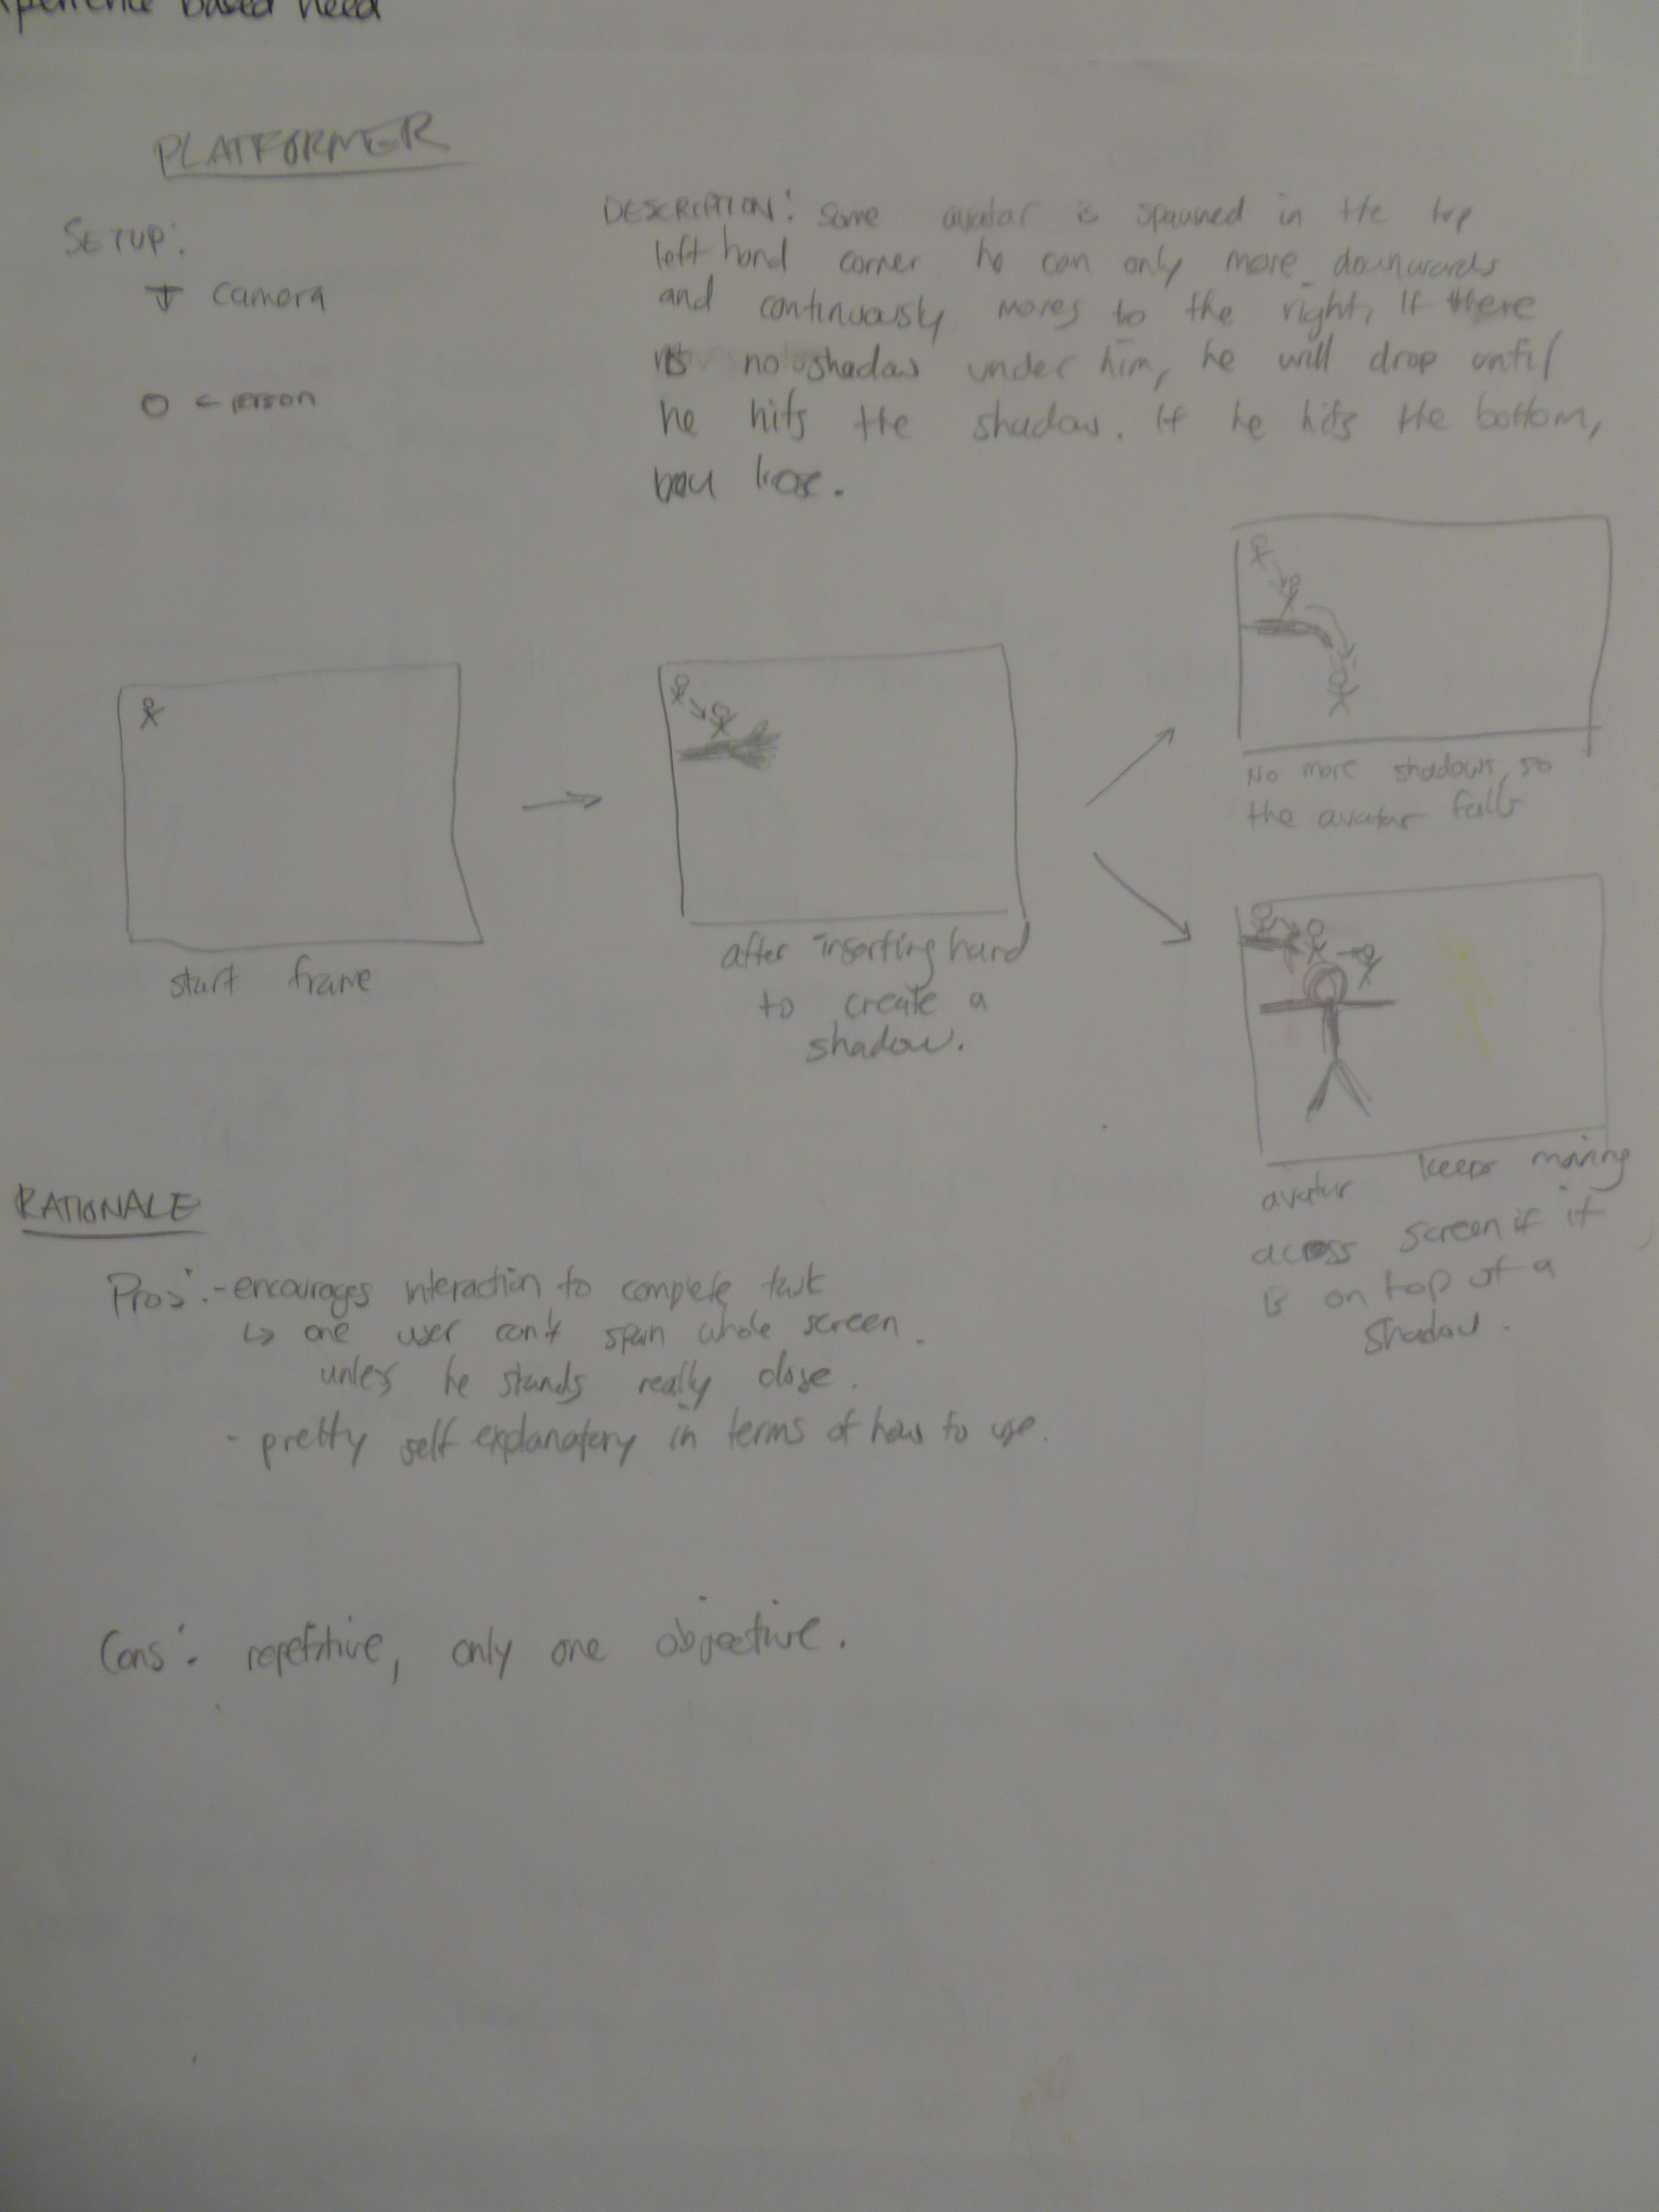 xperience based need
PLATFORMER
SETUP:
camera
o ← person
DESCRIPTION: some avatar is spawned in the top
left hand corner. he can only move downwards
and continuously moves to the right, If there
is no shadow under him, he will drop until
he hits the shadow. If he hits the bottom,
you lose.
start frame
after inserting hand
to create a
shadow.
No more shadows, so
the avatar falls
avatar keeps moving
across screen if it
is on top of a
shadow.
RATIONALE
Pros: - encourages interaction to complete task
↳ one user can't span whole screen.
unless he stands really close.
- pretty self explanatory in terms of how to use.
Cons: repetitive, only one objective.